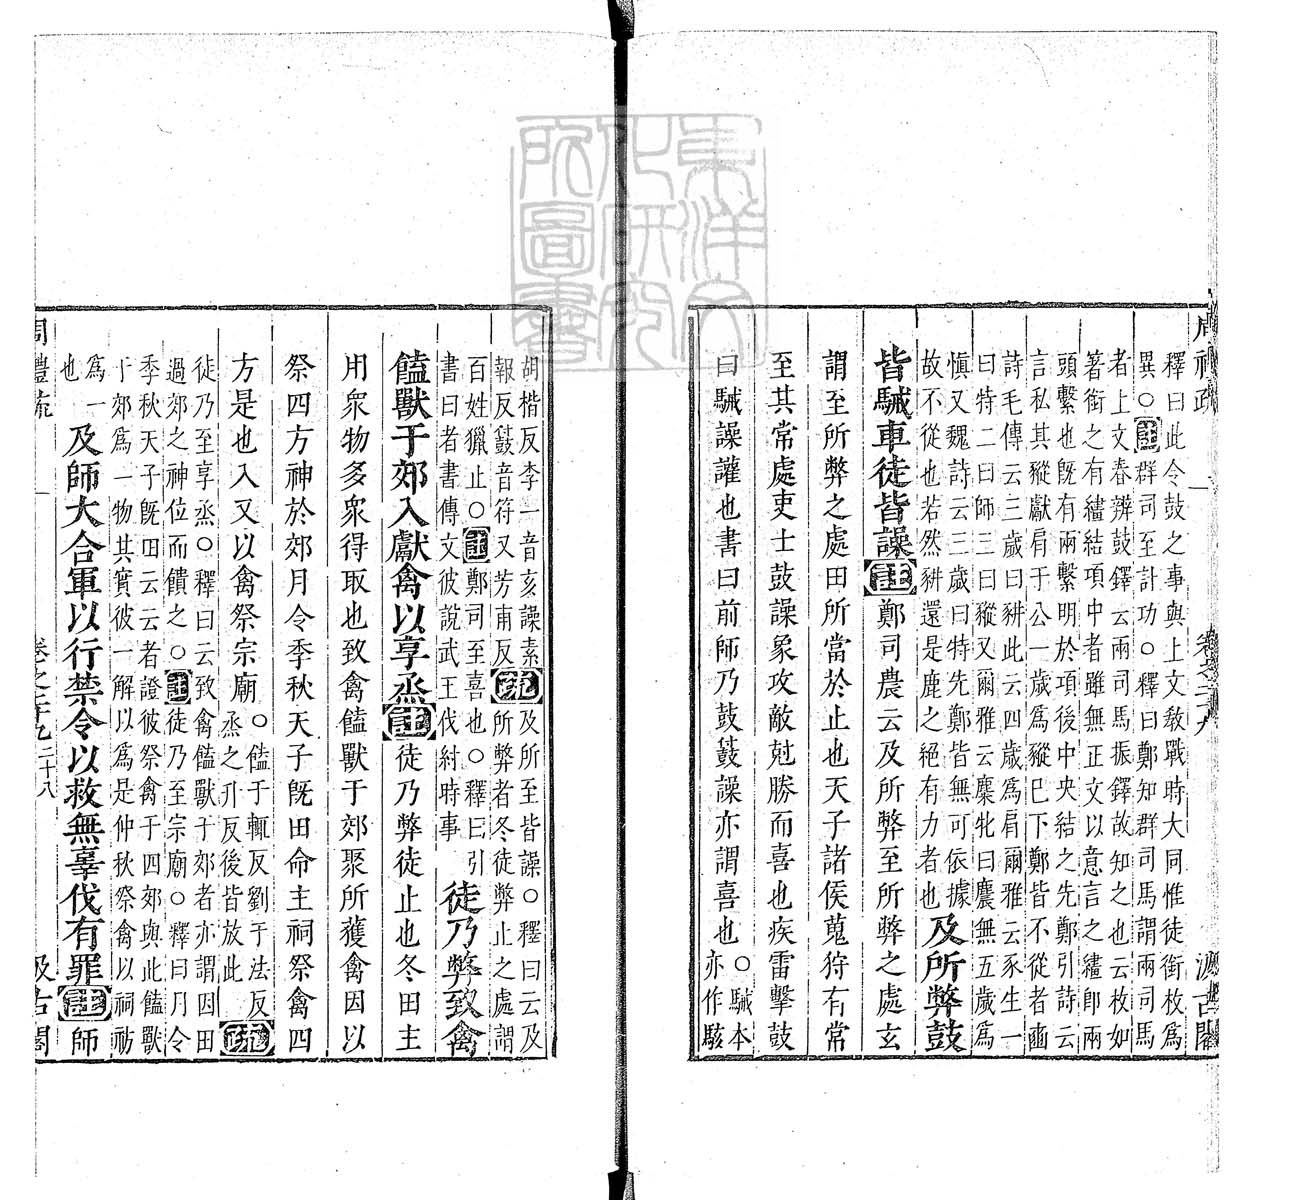 釋曰此令鼓之事與上文敎戰時大同惟徒銜枚爲
異○註群司至計功○釋曰鄭知群司馬謂兩司馬
者上文春辨鼓鐸云兩司馬振鐸故知之也云枚如
箸銜之有繣結項中者雖無正文以意言之繣卽兩
頭繫也旣有兩繫明於項後中央結之先鄭引詩云
言私其豵獻肩于公一歲爲豵已下鄭皆不從者豳
詩毛傳云三歲曰豜此云四歲爲肩爾雅云豕生一
曰特二曰師三曰豵又爾雅云麋牝曰麎無五歲爲
愼又魏詩云三歲曰特先鄭皆無可依據
故不從也若然豜還是鹿之絕有力者也
及所弊鼓
皆駴車徒皆譟註鄭司農云及所弊至所弊之處玄
謂至所弊之處田所當於止也天子諸侯蒐狩有常
至其常處吏士鼓譟象攻敵尅勝而喜也疾雷擊鼓
曰駴譟讙也書曰前師乃鼓鼖譟亦謂喜也
○駴本
亦作駭
胡楷反李一音亥譟素
報反鼖音符又芳甫反
疏
及所至皆譟○釋曰云及
所弊者冬徒弊止之處謂
百姓獵止○註鄭司至喜也○釋曰引
書曰者書傳文彼說武王伐紂時事
徒乃弊致禽
饁獸于郊入獻禽以享烝註徒乃弊徒止也冬田主
用衆物多衆得取也致禽饁獸于郊聚所獲禽因以
祭四方神於郊月令季秋天子旣田命主祠祭禽四
方是也入又以禽祭宗廟
○饁于輒反劉于法反
烝之升反後皆放此
疏
徒乃至享烝○釋曰云致禽饁獸于郊者亦謂因田
過郊之神位而饋之○註徒乃至宗廟○釋曰月令
季秋天子旣田云云者證彼祭禽于四郊與此饁獸
于郊爲一物其實彼一解以爲是仲秋祭禽以祠祊
爲一
也
及師大合軍以行禁令以救無辜伐有罪註師
周禮疏
卷之二十九
二十八
汲古閣